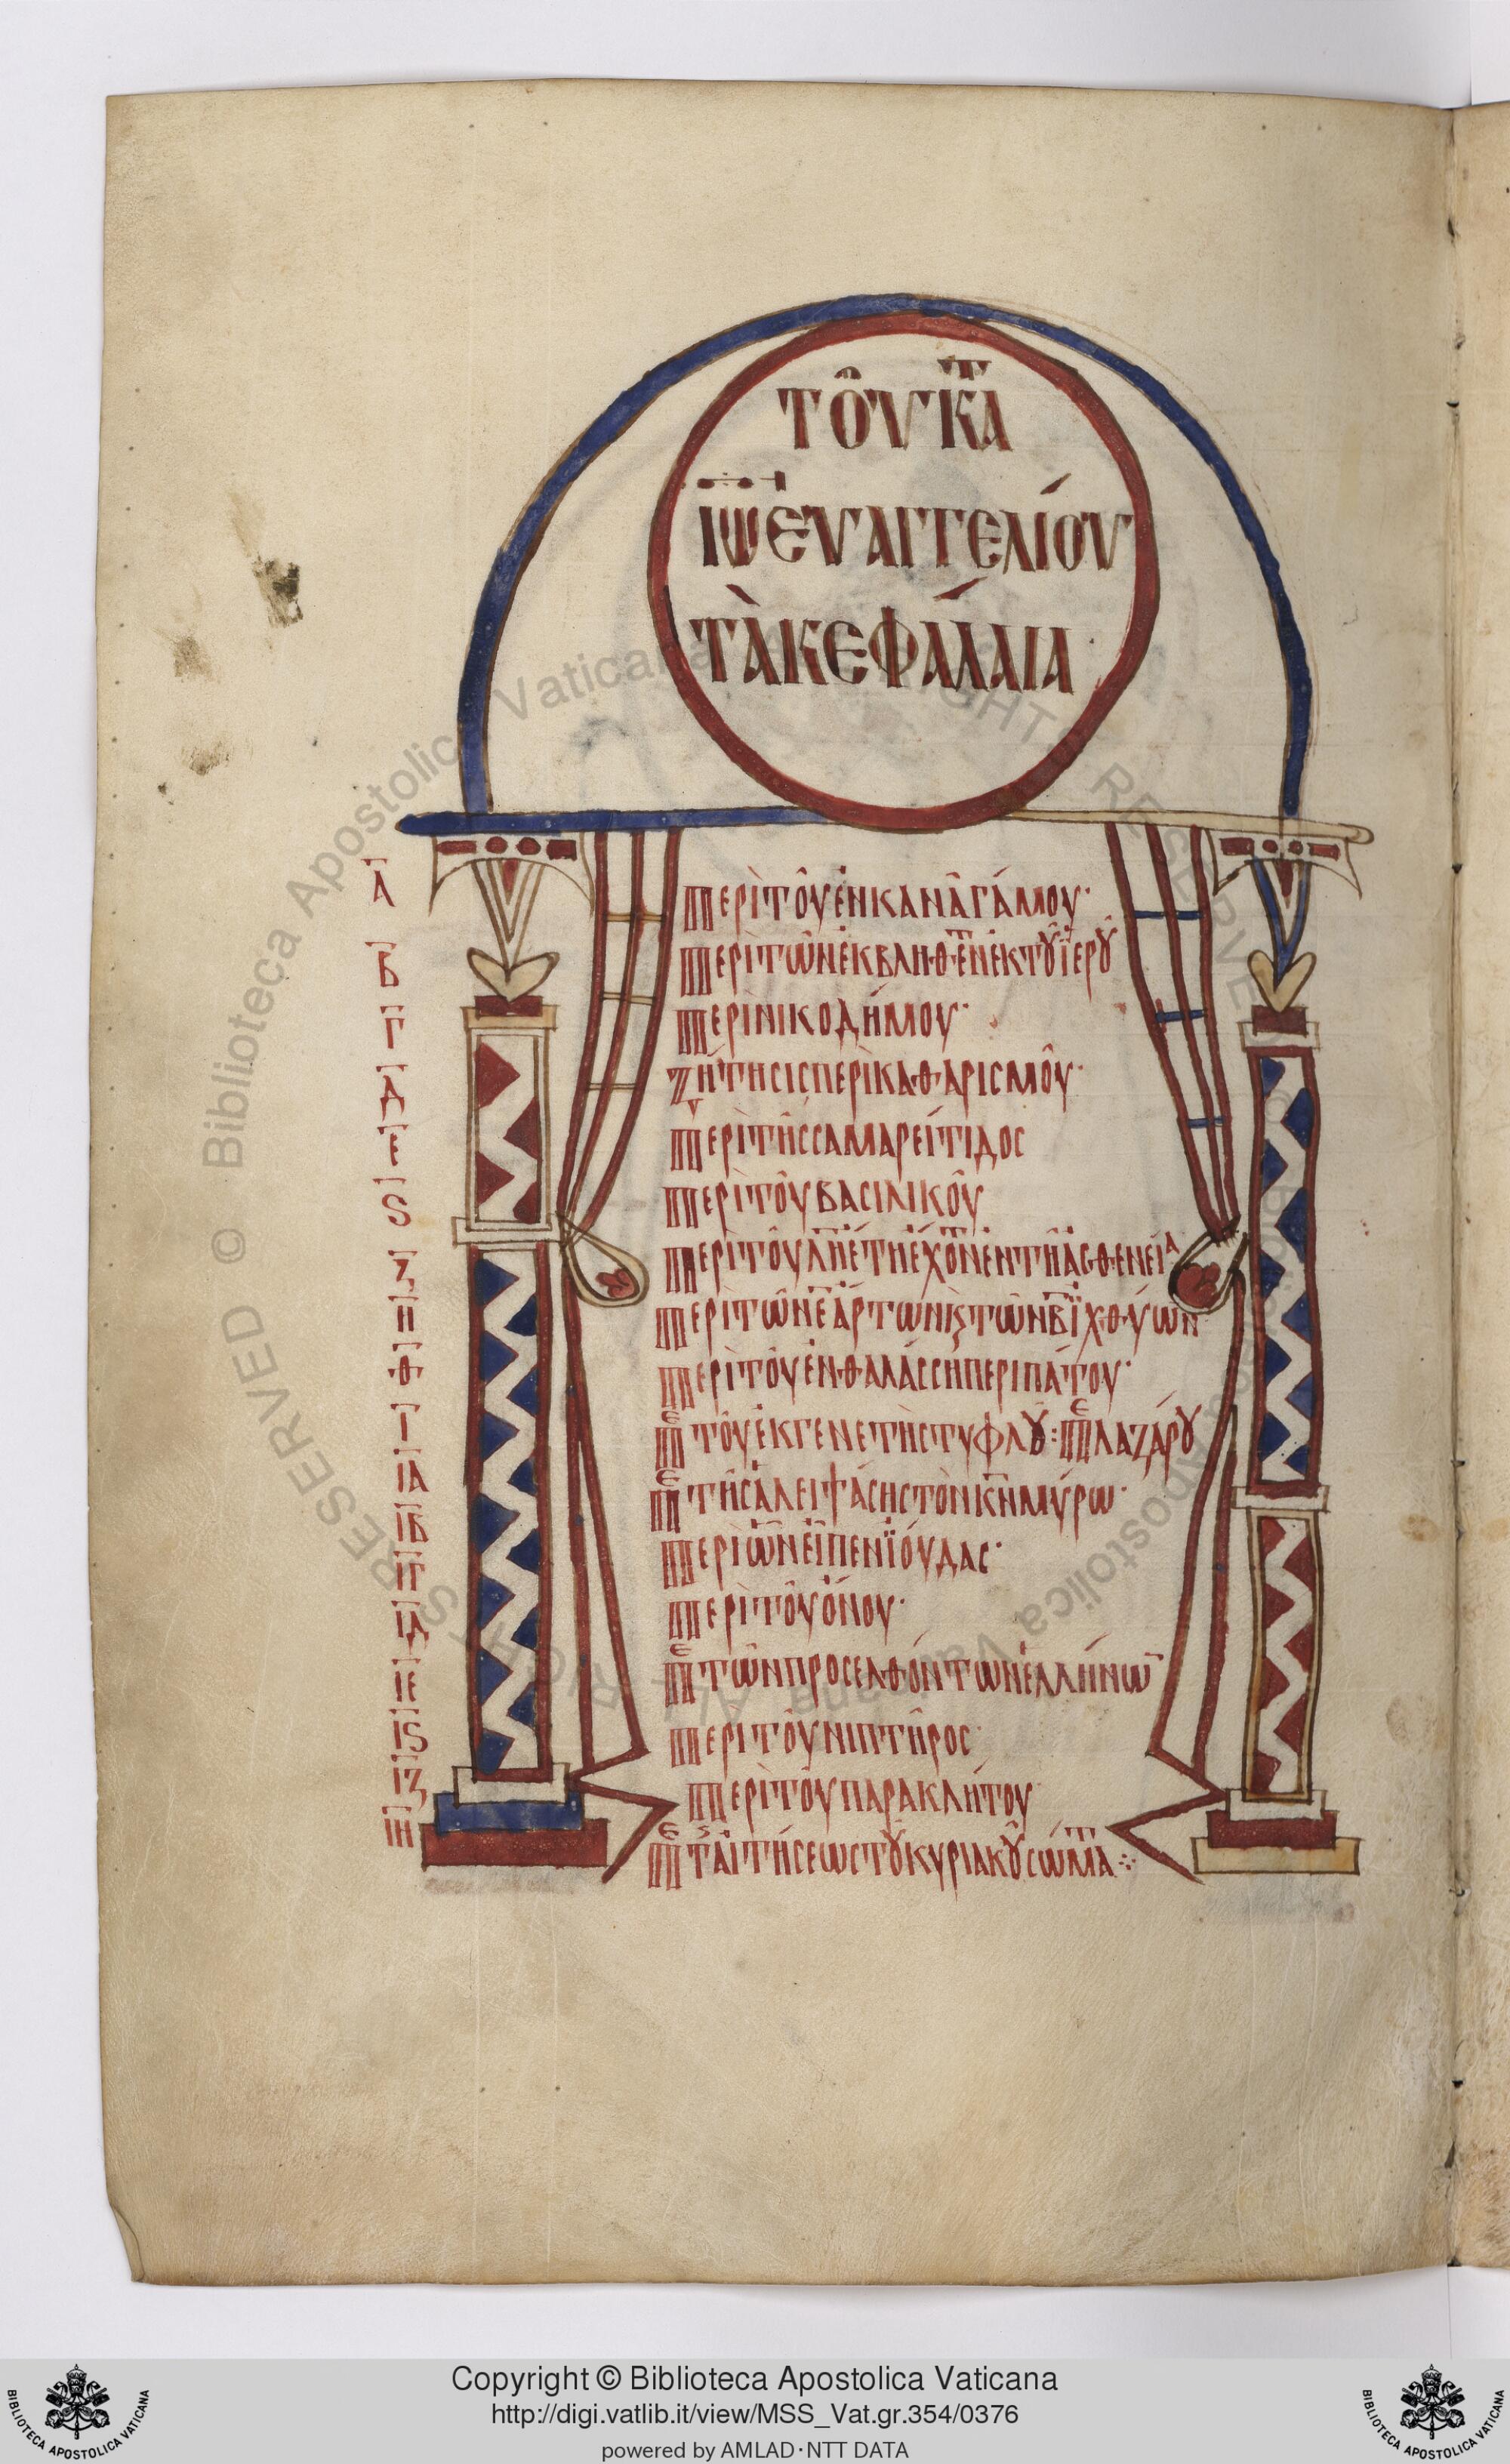 ΤΟῦ ΚΑΤ
ἸΩ ἘΥΑΓΓΕΛΊΟΥ
ΤᾺ ΚΕΦΆΛΑΙΑ
Α ΠΕΡῚ ΤΟῦ ἘΝ ΚΑΝᾶ ΓΆΜΟΥ·
Β ΠΕΡῚ ΤῶΝ ἘΚΒΛΗΘΕΝΤ ἘΚ ΤΟῦ ἹΕΡΟῦ
Γ ΠΕΡῚ ΝΙΚΟΔΉΜΟΥ·
Δ ΖΉΤΗΣΙΣ ΠΕΡῚ ΚΑΘΑΡΙΣΜΟῦ·
Ε ΠΕΡῚ ΤῆΣ ΣΑΜΑΡΕΊΤΙΔΟΣ
Ϛ ΠΕΡῚ ΤΟῦ ΒΑΣΙΛΙΚΟῦ
Ζ ΠΕΡῚ ΤΟῦ ΛΗ ἜΤΗ ἜΧΟΝΤ ἘΝ ΤΗ ἈΣΘΕΝΕΊΑ
Η ΠΕΡῚ ΤῶΝ Ε ἌΡΤΩΝ Κ ΤῶΝ Β ἸΧΘΎΩΝ
Θ ΠΕΡῚ ΤΟῦ ἘΝ ΘΑΛΆΣΣΗ ΠΕΡΙΠΆΤΟΥ·
Ι ΠΕ ΤΟῦ ἘΚ ΓΕΝΕΤῆΣ ΤΥΦΛΟῦ: ΠΕ ΛΑΖΆΡΟΥ
ΙΑ
ΙΒ ΠΕ ΤῆΣ ἈΛΕΙΨΆΣΗΣ ΤῸΝ ΚΝ ΜΎΡΩ·
ΙΓ ΠΕΡῚ ὯΝ ΕἾΠΕΝ ἸΟΎΔΑΣ·
ΙΔ ΠΕΡῚ ΤΟῦ ὌΝΟΥ·
ΙΕ ΠΕ ΤῶΝ ΠΡΟΣΕΛΘΌΝΤΩΝ ἙΛΛΉΝΩ
ΙϚ ΠΕΡῚ ΤΟῦ ΝΙΠΤῆΡΟΣ·
ΙΖ ΠΕΡῚ ΤΟῦ ΠΑΡΑΚΛΉΤΟΥ
ΙΗ ΠΕ Τ ΑἸΤΉΣΕΩΣ ΤΟῦ ΚΥΡΙΑΚΟῦ ΣΏΜΑΤ
© Biblioteca Apostolica Vaticana
ALL RIGHTS RESERVED
Copyright © Biblioteca Apostolica Vaticana
http://digi.vatlib.it/view/MSS_Vat.gr.354/0376
powered by AMLAD·NTT DATA
BIBLIOTECA APOSTOLICA VATICANA
BIBLIOTECA APOSTOLICA VATICANA